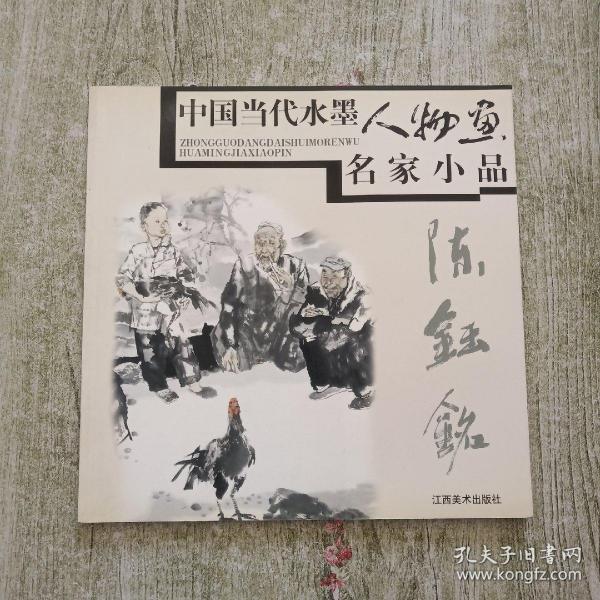 中国当代水墨人物画
ZHONGGUODANGDAISHUIMORENWU
HUAMINGJIAXIAOPIN
名家小品
陈钰铭
江西美术出版社
孔夫子旧书网
www.kongfz.com